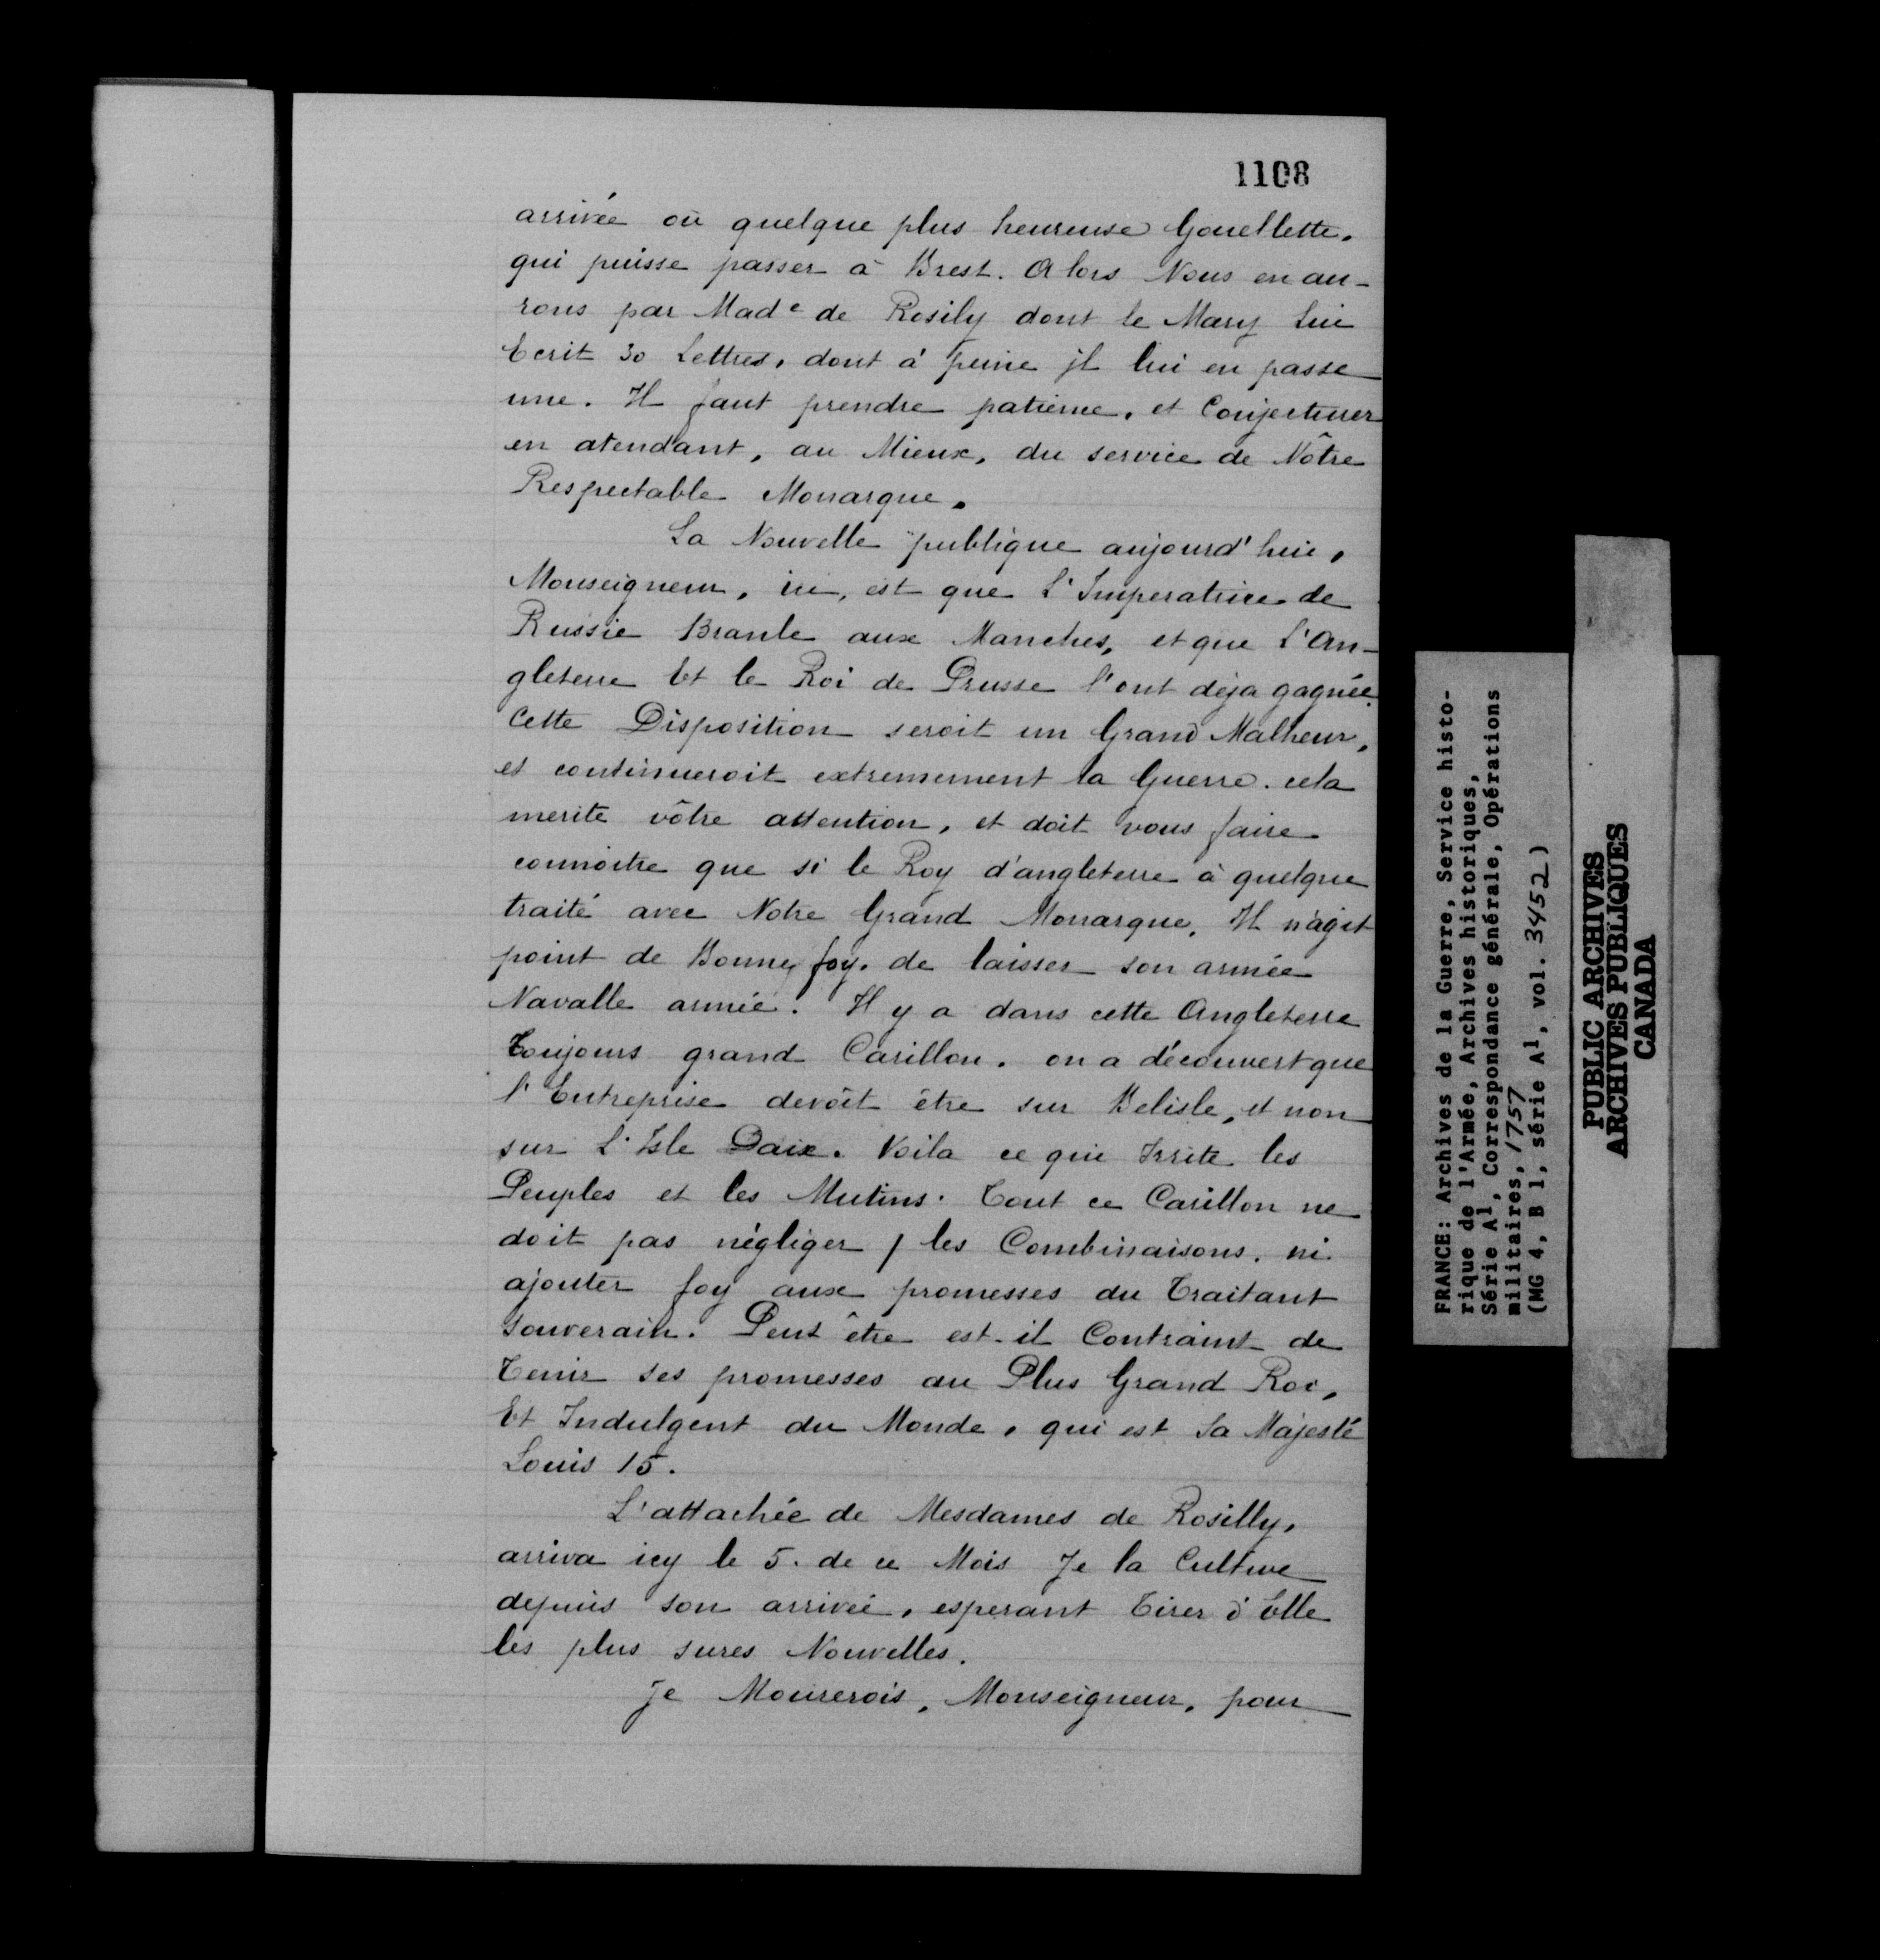 1108
arrivée où quelque plus heureuse Gouellette,
qui puisse passer à Brest. Alors Nous en au-
rons par Made de Rosily dont le Mary Lui
Ecrit 30 Lettres, dont à peine jl lui en passe
une. Il faut prendre patience, et Conjecturer
en atendant, au Mieux, du service de Nôtre
Respectable Monarque.
La Nouvelle publique aujourd'hui,
Monseigneur, ici, est que L'Imperatrice de
Russie Branle aux Manches, et que L'An-
gleterre Et le Roi de Prusse l'ont déja gagnée.
Cette Disposition seroit un Grand Malheur,
et continueroit extremement la Guerre. cela
merite vôtre attention, et doit vous faire
connoitre que si le Roy d'angleterre à quelque
traité avec Notre Grand Monarque, Il n'agit
point de Bonne foy. de laisser son armée
Navalle armée. Il y a dans cette Angleterre
Toujours grand Carillon. on a découvert que
l'Entreprise devoit être sur Belisle, et non
sur L'Isle Daix. Voila ce qui Irrite les
Peuples et les Mutins. Tout ce Carillon ne
doit pas négliger / les Combinaisons. ni
ajouter foy aux promesses du Traitant
souverain. Peut être est-il Contraint de
Tenir ses promesses au Plus Grand Roi,
Et Indulgent du Monde, qui est Sa Majesté
Louis 15.
L'attachée de Mesdames de Rosilly,
arriva icy le 5. de ce Mois Je la Cultive
depuis son arrivée, esperant Tirer d'Elle
les plus sures Nouvelles.
Je Mourerois, Monseigneur, pour
FRANCE: Archives de la Guerre, Service histo-
rique de l'Armée, Archives historiques,
Série A1, Correspondance générale, Opérations
militaires, 1757
(MG 4, B 1, série A1, vol. 3452)
PUBLIC ARCHIVES
ARCHIVES PUBLIQUES
CANADA